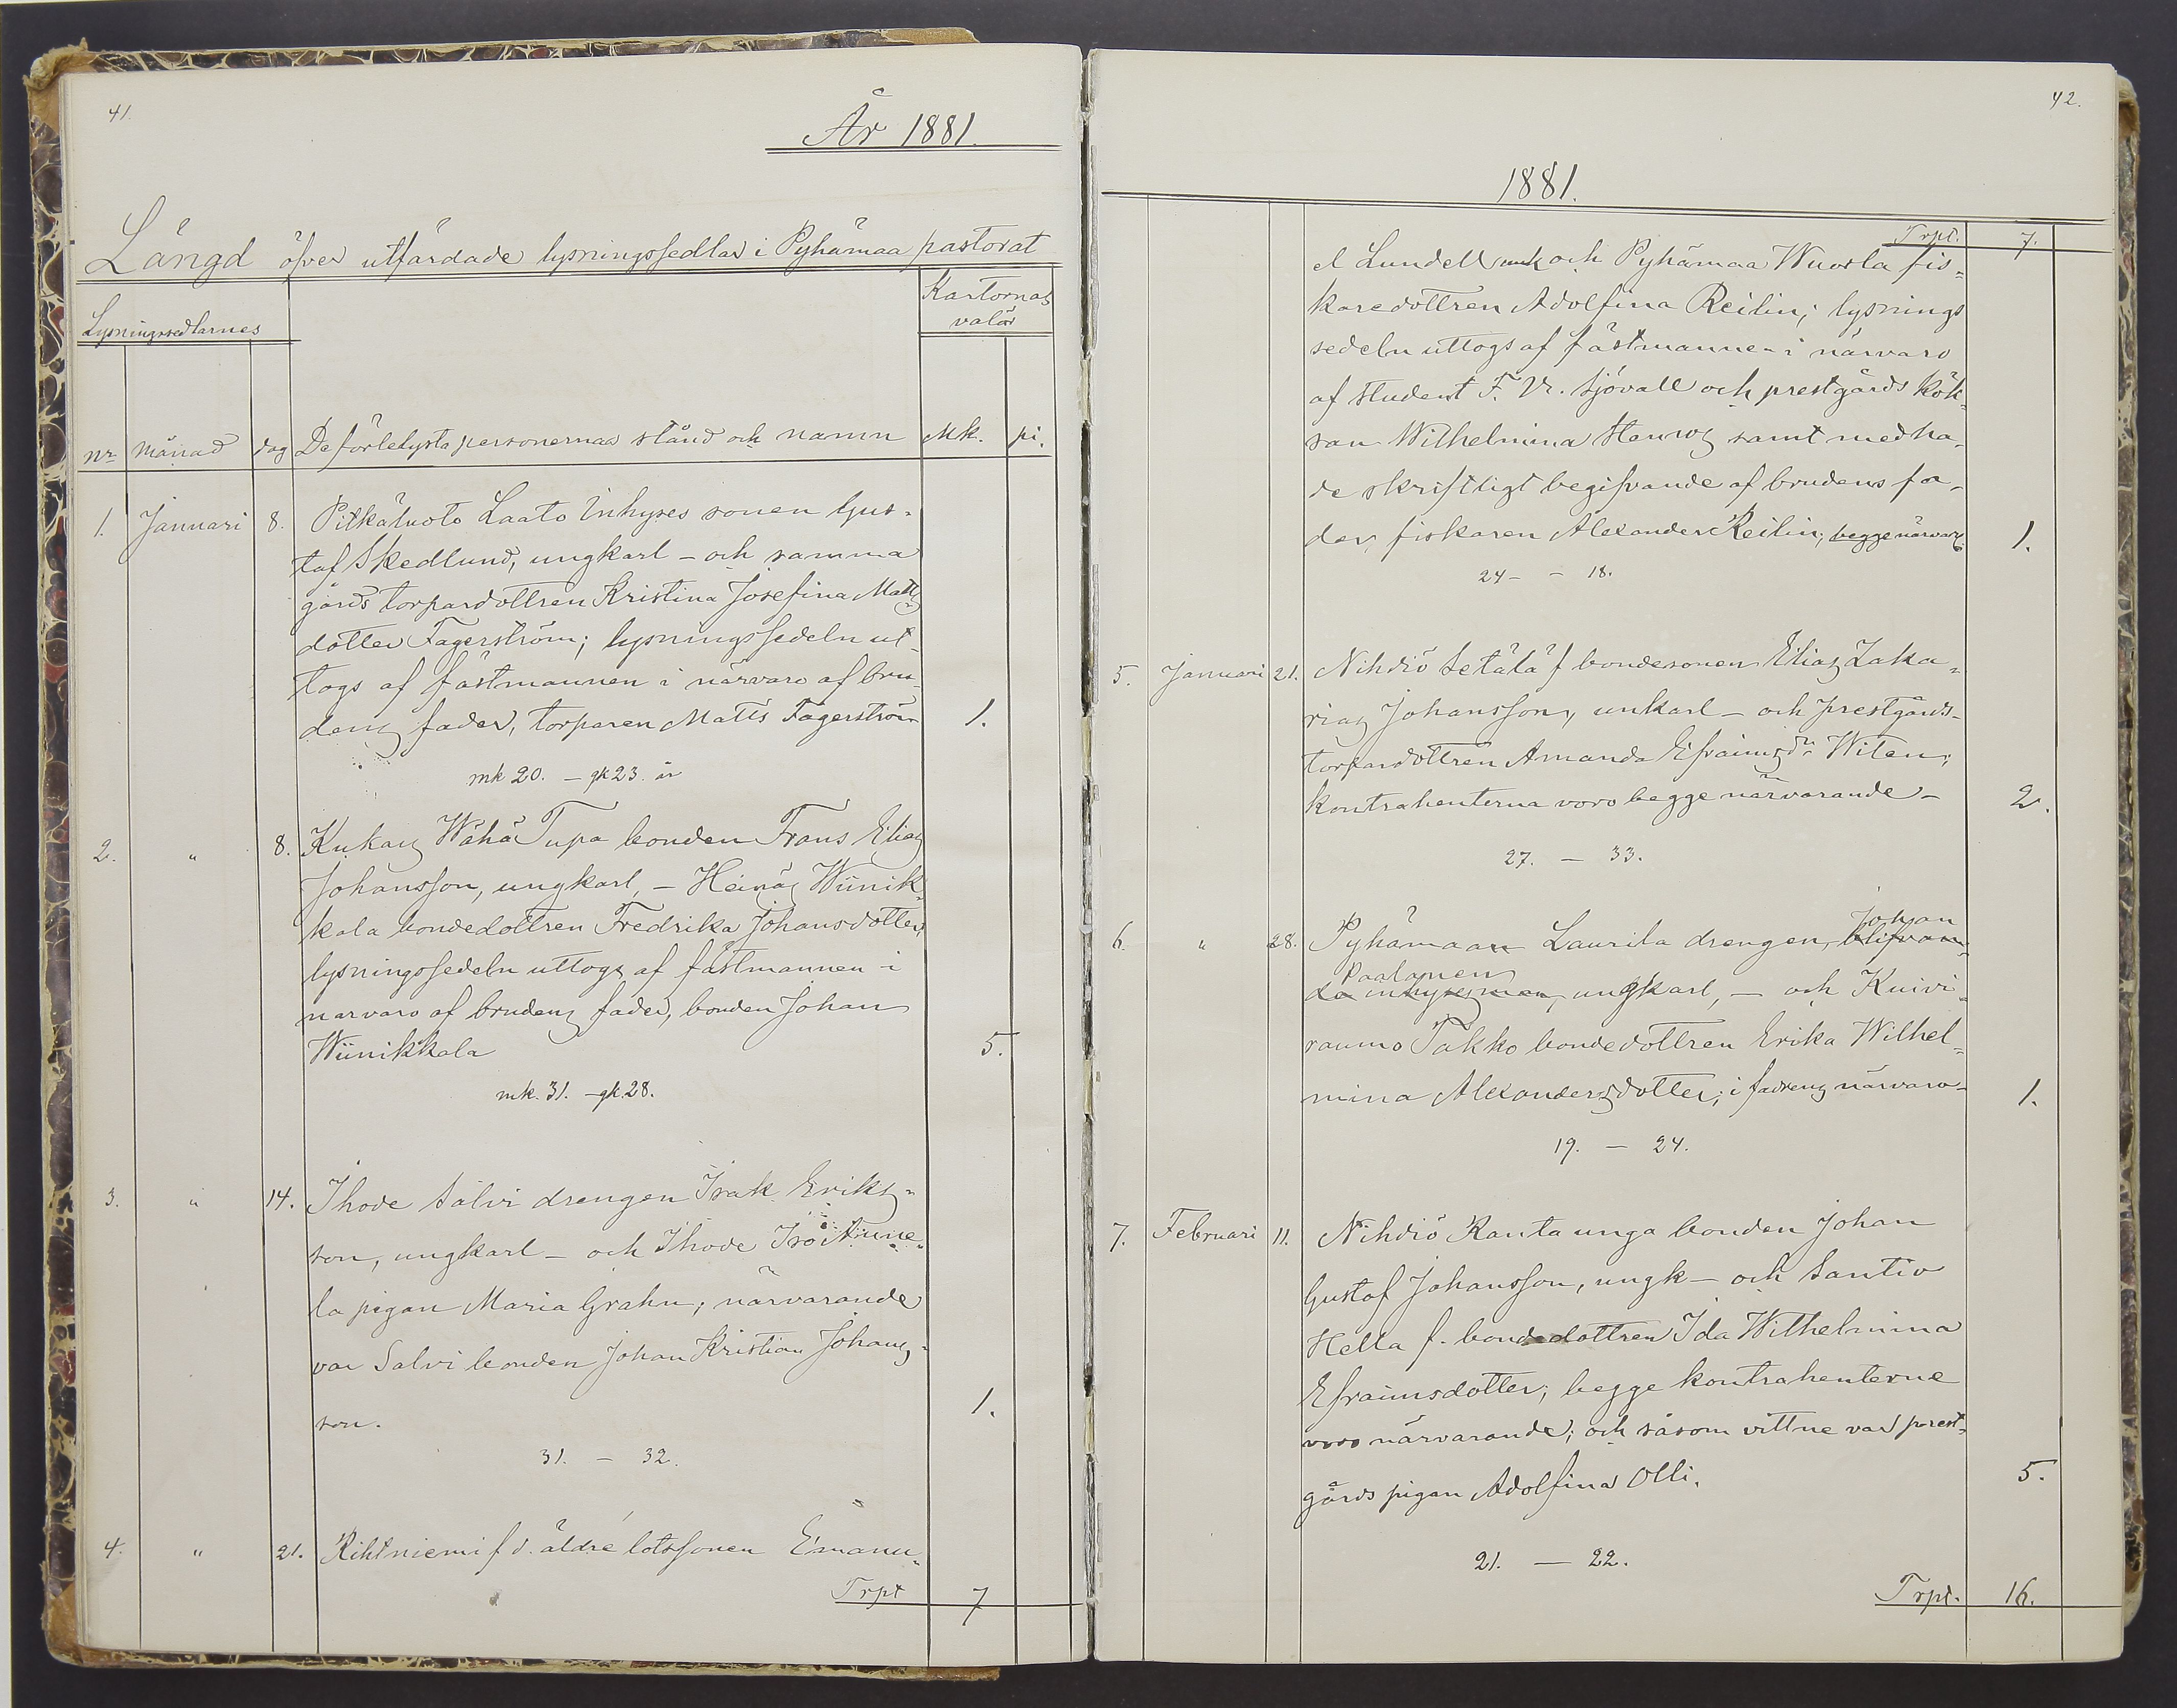 41.
År 1881.
Längd öfver utfärdade lysningssedlar i Pyhämaa pastorat
Lysningssedlarnes
Kartornas
valör
nr månad dag De förlelysta personernas stånd och namn Mk. pi.
1. Januari 8. Pitkäluoto Laato Inhyses sonen Gus-
taf Skedlund, ungkarl - och samma
gårds torpardottren Kristina Josefina Matts
dotter Fagerström; lysningssedeln ut-
togs af fästmannen i närvaro af bru-
dens fader, torparen Matts Fagerström 1.
mk 20. - qk 23 år
2. " 8. Kukais Wähä Tupa bonden Frans Elias
Johansson, ungkarl, - Heinäs Wiinik-
kala bondedottren Fredrika Johansdotter,
lysningssedeln uttogs af fästmannen i
närvaro af brudens fader, bonden Johan
Wiinikkala 5.
mk. 31. - qk. 28.
3. " 14. Ihode Salvi drengen Isak Eriks-
son, ungkarl - och Ihode
la pigan Maria Grahn; närvarande
var Salvi bonden Johan Kristian Johans-
son. 1.
31. - 32.
4. " 21. Rihtniemi f d. äldre lotssonen Emanu-
Trpt 7
42.
1881.
Trpt. 7.
el Lundell och Pyhämaa Wuorla fis-
karedottren Adolfina Reilin; lysnings
sedeln uttogs af fästmannen i närvaro
af student F. W. Sjövall och prestgårds kök-
san Wilhelmina samt medha-
de skriftligt begifvande af brudens fa-
der, fiskaren Alexander Reilin; begge närvar. 1.
24 - - 18.
5. Januari 21. Nihdiö Setälä f bondesonen Elias Zaka-
rias Johansson, unkarl - och prestgårds-
torpardottren Amanda Efraimsdr Witen;
kontrahenterna voro begge närvarande - 2.
27. - 33.
Johan
6. " 28. Pyhämaan Laurila drengen,
Paalanen
da inhysesman, ungkarl, - och Kuivi-
raumo Takko bondedottren Erika Wilhel-
mina Alexandersdotter; i fadrens närvaro - 1.
19. - 24.
7. Februari 11. Nihdiö Ranta unga bonden Johan
Gustaf Johansson, ungk - och Santio
Hella f. bondedottren Ida Wilhelmina
Efraimsdotter; begge kontrahenterne
voro närvarande; och såsom vittne var prest-
gårds pigan Adolfina Olli. 5.
21. - 22.
Trpt. 16.